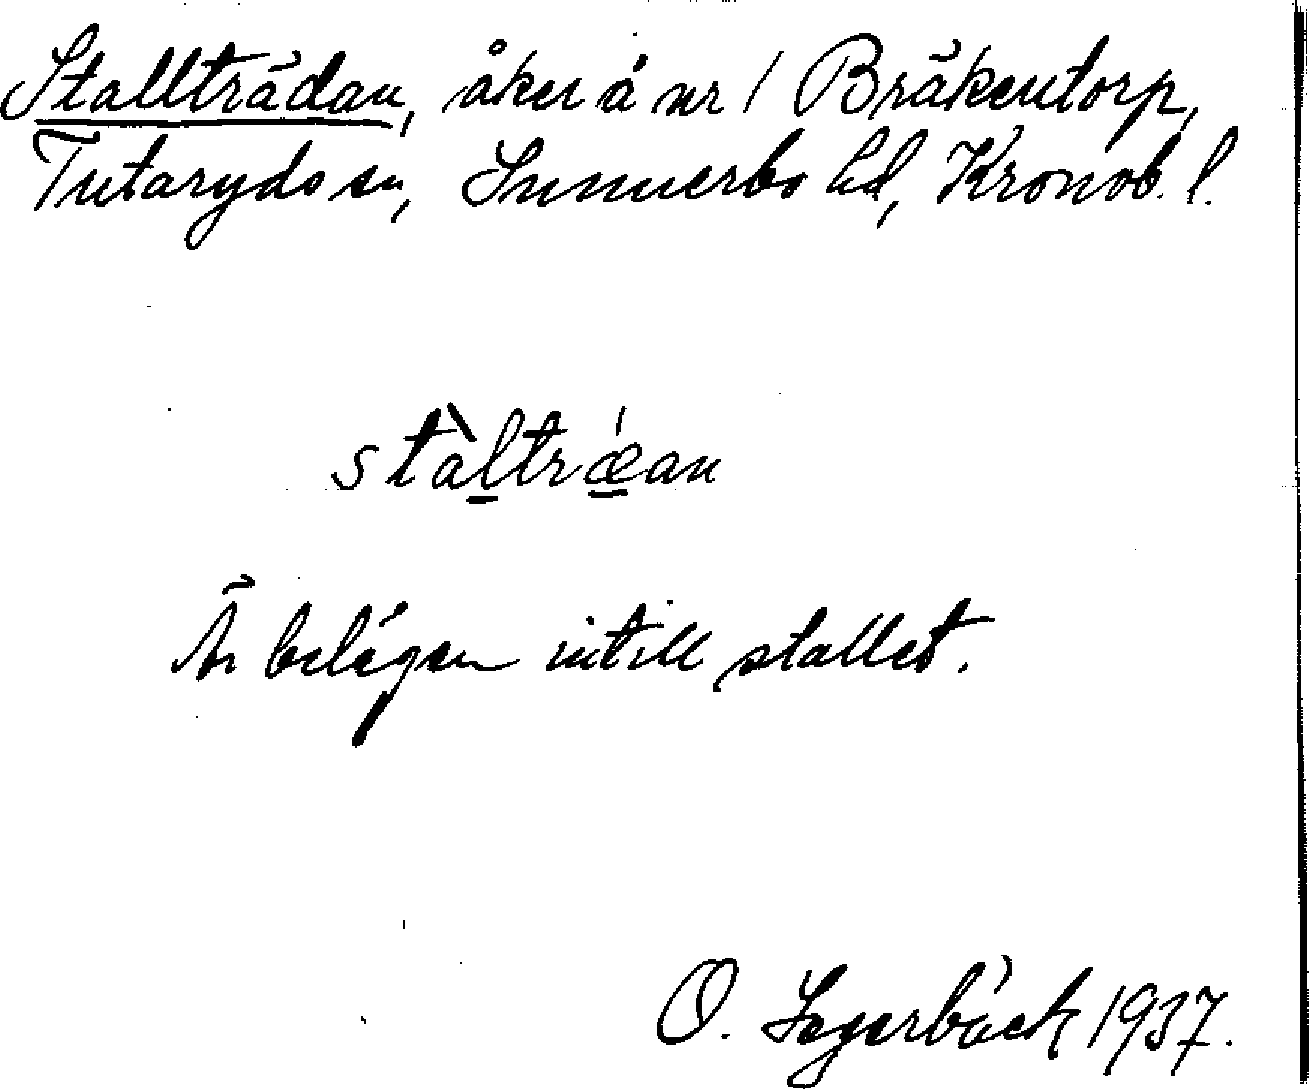 Stallträdan, åker å nr 1 Bräkentorp,
Tutaryds sn, Sunnerbo hd, Kronob. l.
stàltrǽan
Är belägen intill stallet.
O. Lagerbäck 1937.